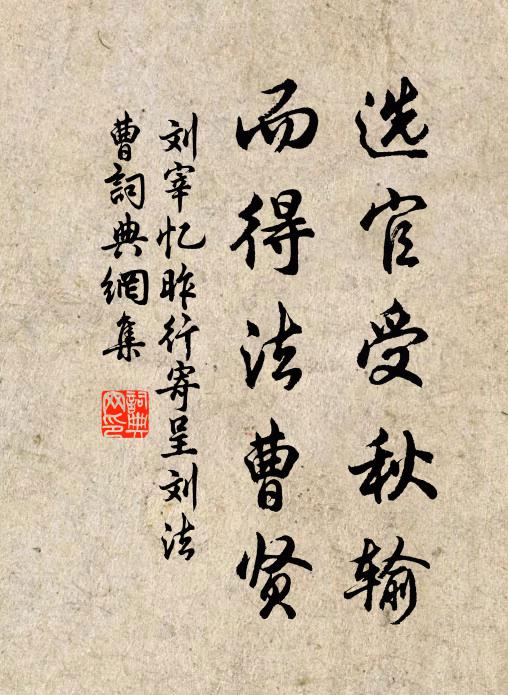 选官受秋输
而得法曹贤
刘宰忆昨行寄呈刘法
曹詞典網集
詞典
网印